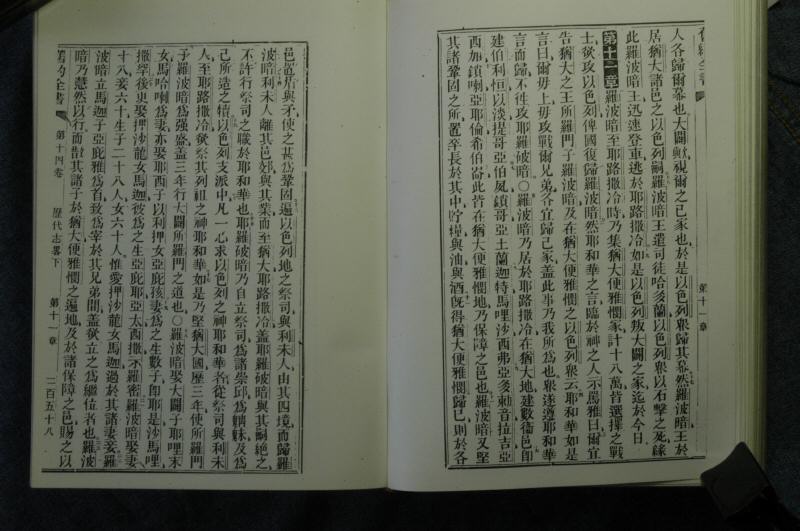 舊約全書
第十一章
人各歸爾幕也大闢歟視爾之己家也於是以色列衆歸其幕然羅波暗王於
居猶大諸邑之以色列嗣羅波暗王遣司徒哈多蘭以色列衆以石擊之死緣
此羅波暗王迅速登車逃於耶路撒冷如是以色列叛大闢之家迄於今日
第十一章羅波暗至耶路撒冷時乃集猶大便雅憫家計十八萬皆選擇之戰
士欲攻以色列俾國復歸羅波暗然耶和華之言臨於神之人示馬雅曰爾宜
告猶大之王所羅門子羅波暗及在猶大便雅憫之以色列衆云耶和華如是
言曰爾毋上毋攻戰爾兄弟各宜歸己家蓋此事乃我所爲也衆遂遵耶和華
言而歸不往攻耶羅破暗○羅波暗乃居於耶路撒冷在猶大地建數衞邑即
建伯利恒以淡提哥亞伯夙鎖哥亞土蘭迦特馬哩沙西弗亞多喇音拉吉亞
西加鎖喇亞耶倫希伯崙此皆在猶大便雅憫地乃保障之邑也羅波暗又堅
其諸鞏固之所置卒長於其中貯糧與油與酒旣得猶大便雅憫歸己則於各
邑置盾與矛使之甚爲鞏固遍以色列地之祭司與利未人由其四境而歸羅
波暗利未人離其邑郊與其業而至猶大耶路撒冷蓋耶羅破暗與其嗣絶之
不許行祭司之職於耶和華也耶羅破暗乃自立祭司爲諸崇邱爲魑魅及爲
己所造之犢以色列支派中凡一心求以色列之神耶和華者從祭司與利未
人至耶路撒冷欲祭其列祖之神耶和華如是乃堅猶大國歷三年使所羅門
子羅波暗爲强盛蓋三年行大闢所羅門之道也○羅波暗娶大闢子耶哩末
女馬哈喇爲妻亦娶耶西子以利押女亞庇孩妻爲之生數子即耶是沙馬哩
撒繹後更娶押沙龍女馬迦彼爲之生亞庇耶亞太西撒示羅密羅波暗娶妻
十八妾六十生子二十八人女六十人惟愛押沙龍女馬迦過於其諸妻妾羅
波暗立馬迦子亞庇雅爲首致爲宰於其兄弟間蓋欲立之爲繼位者也羅波
暗乃慧然以行而散其諸子於猶大便雅憫之遍地及於諸保障之邑賜之以
舊約全書
第十四卷
歷代志畧下
第十一章
二百五十八